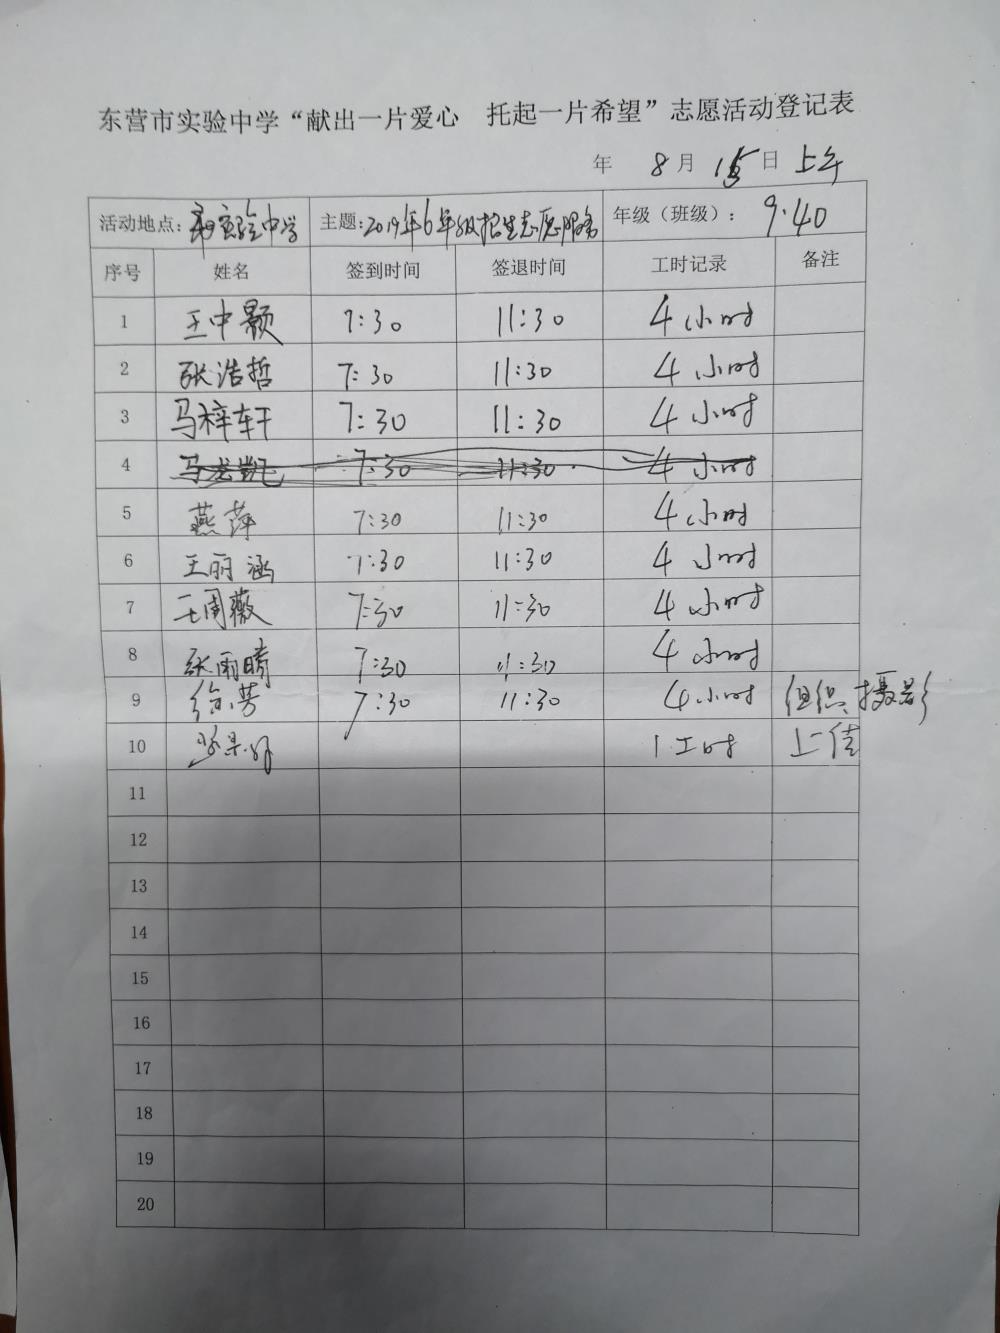 东营市实验中学“献出一片爱心 托起一片希望”志愿活动登记表
年 8月 15日 上午
活动地点: 市实验中学 主题: 2019年6年级招生志愿服务 年级(班级): 9.40
序号 姓名 签到时间 签退时间 工时记录 备注
1 王中颢 7:30 11:30 4小时
2 张浩哲 7:30 11:30 4小时
3 马梓轩 7:30 11:30 4小时
4 马龙凯 7:30 11:30 4小时
5 燕萍 7:30 11:30 4小时
6 王丽涵 7:30 11:30 4小时
7 王周薇 7:30 11:30 4小时
8 张雨晴 7:30 11:30 4小时
9 徐芳 7:30 11:30 4小时 组织、摄影
10 1工时 上传
11
12
13
14
15
16
17
18
19
20